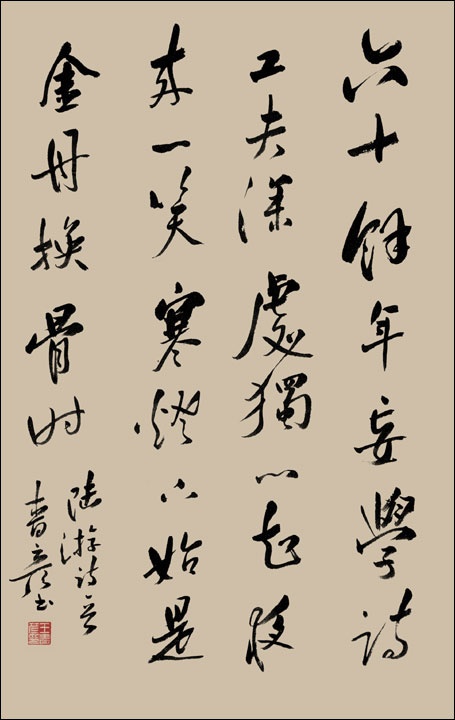 六十餘年妄學詩
工夫深處獨心知夜
来一笑寒燈下始是
金丹換骨时
陸游詩